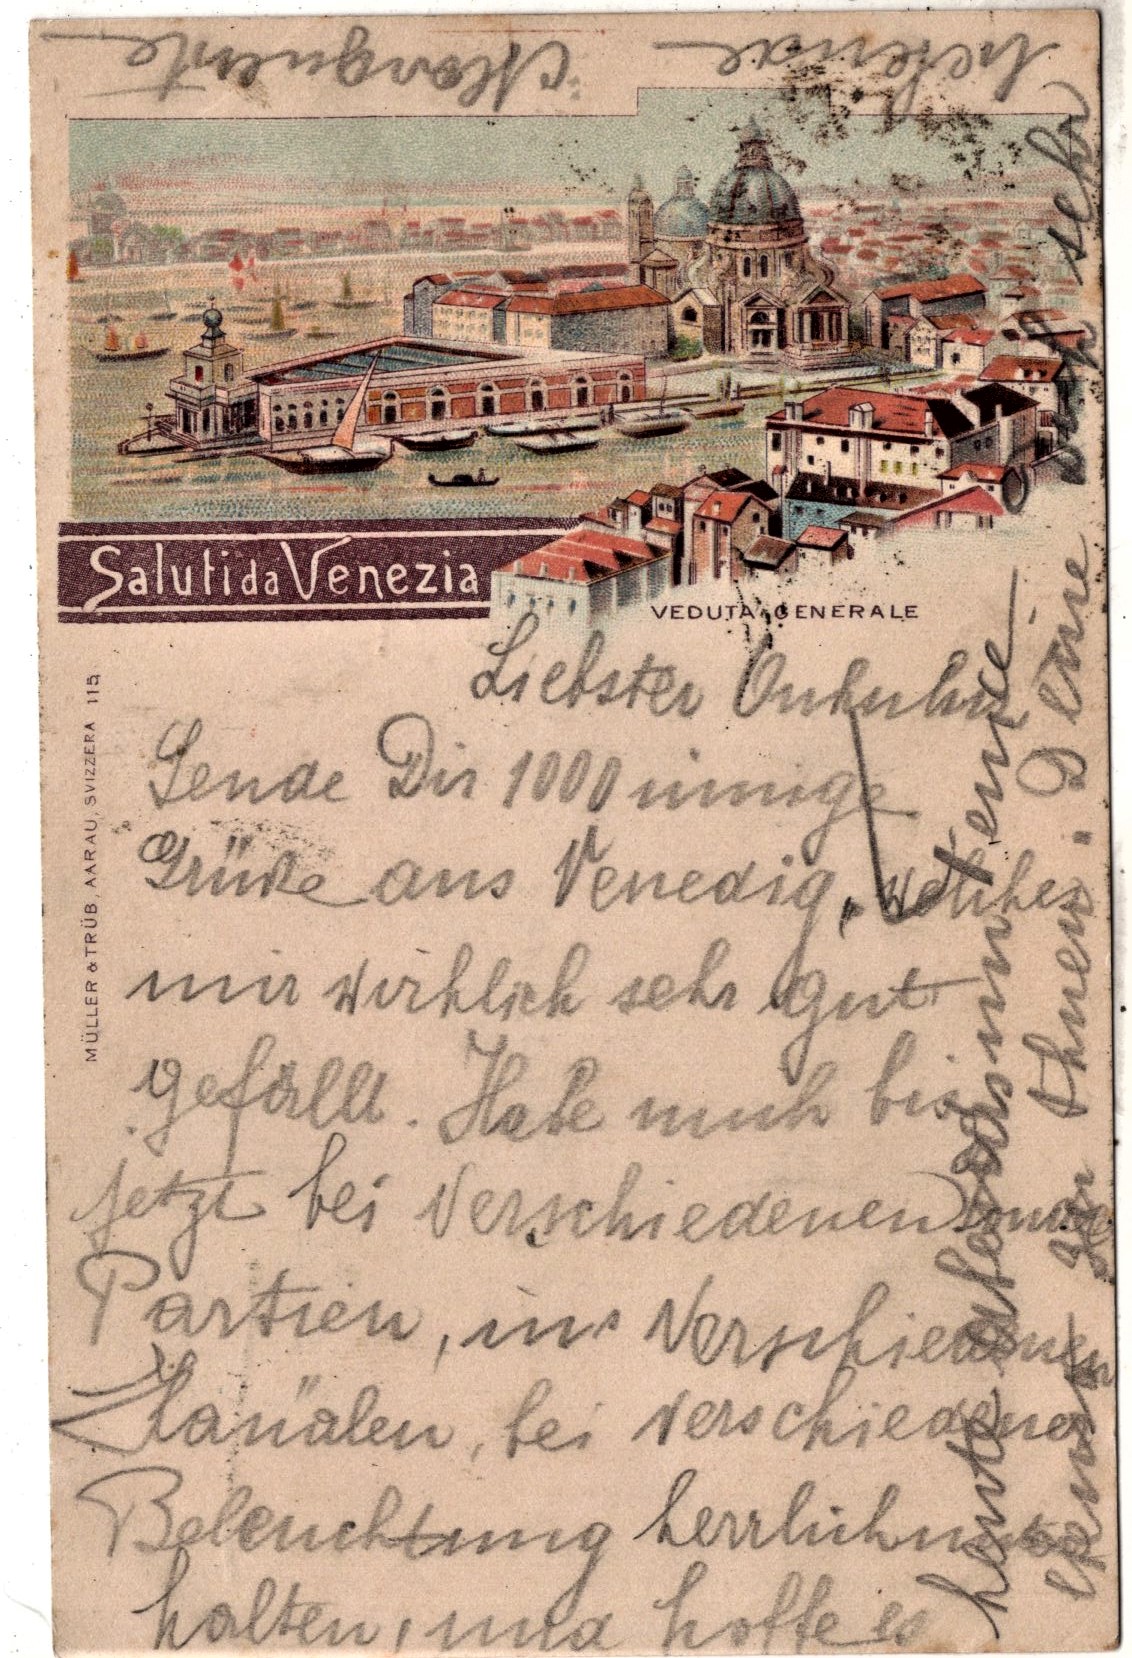 Saluti da Venezia
VEDUTA GENERALE
MÜLLER & TRÜB, AARAU, SVIZZERA 115
Liebster
Sende Dir 1000 innige
Grüße aus Venedig, welches
mir wirklich sehr gut
gefällt. Habe mich bis
jetzt bei verschiedenen
Partien, in verschiedenen
Kanälen, bei verschiedener
Beleuchtung herrlich
halten, und hoffe es
heute
Ihnen. Deine
Dich sehr
liebende Marguerite